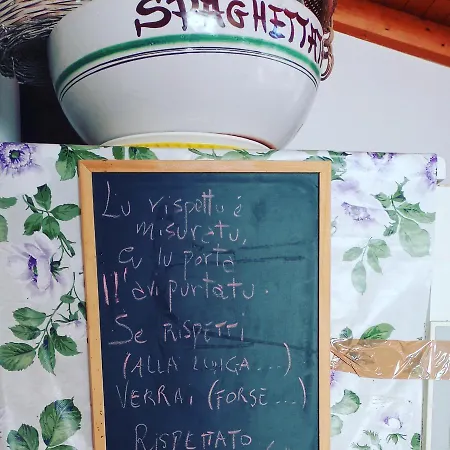 SPAGHETTATE
Lu rispettu é
misuratu,
cu lu porta
ll'avi purtatu.
SE RISPETTI
(ALLA LUNGA...)
VERRAI (FORSE...)
RISPETTATO